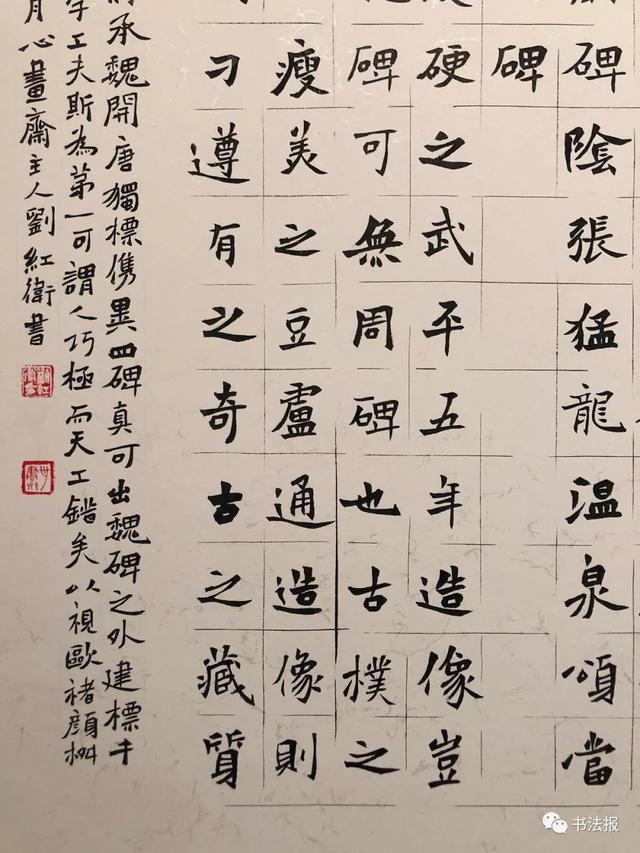 碑陰張猛龍温泉頌當
碑
硬之武平五年造像豈
碑可無周碑也古樸之
瘦美之豆盧通造像則
刁遵有之奇古之藏質
承魏開唐獨標儁異四碑真可出魏碑之外建標千
工夫斯為第一可謂人巧極而天工錯矣以視歐褚顔柳
心畫齋主人劉紅衛書
书法报